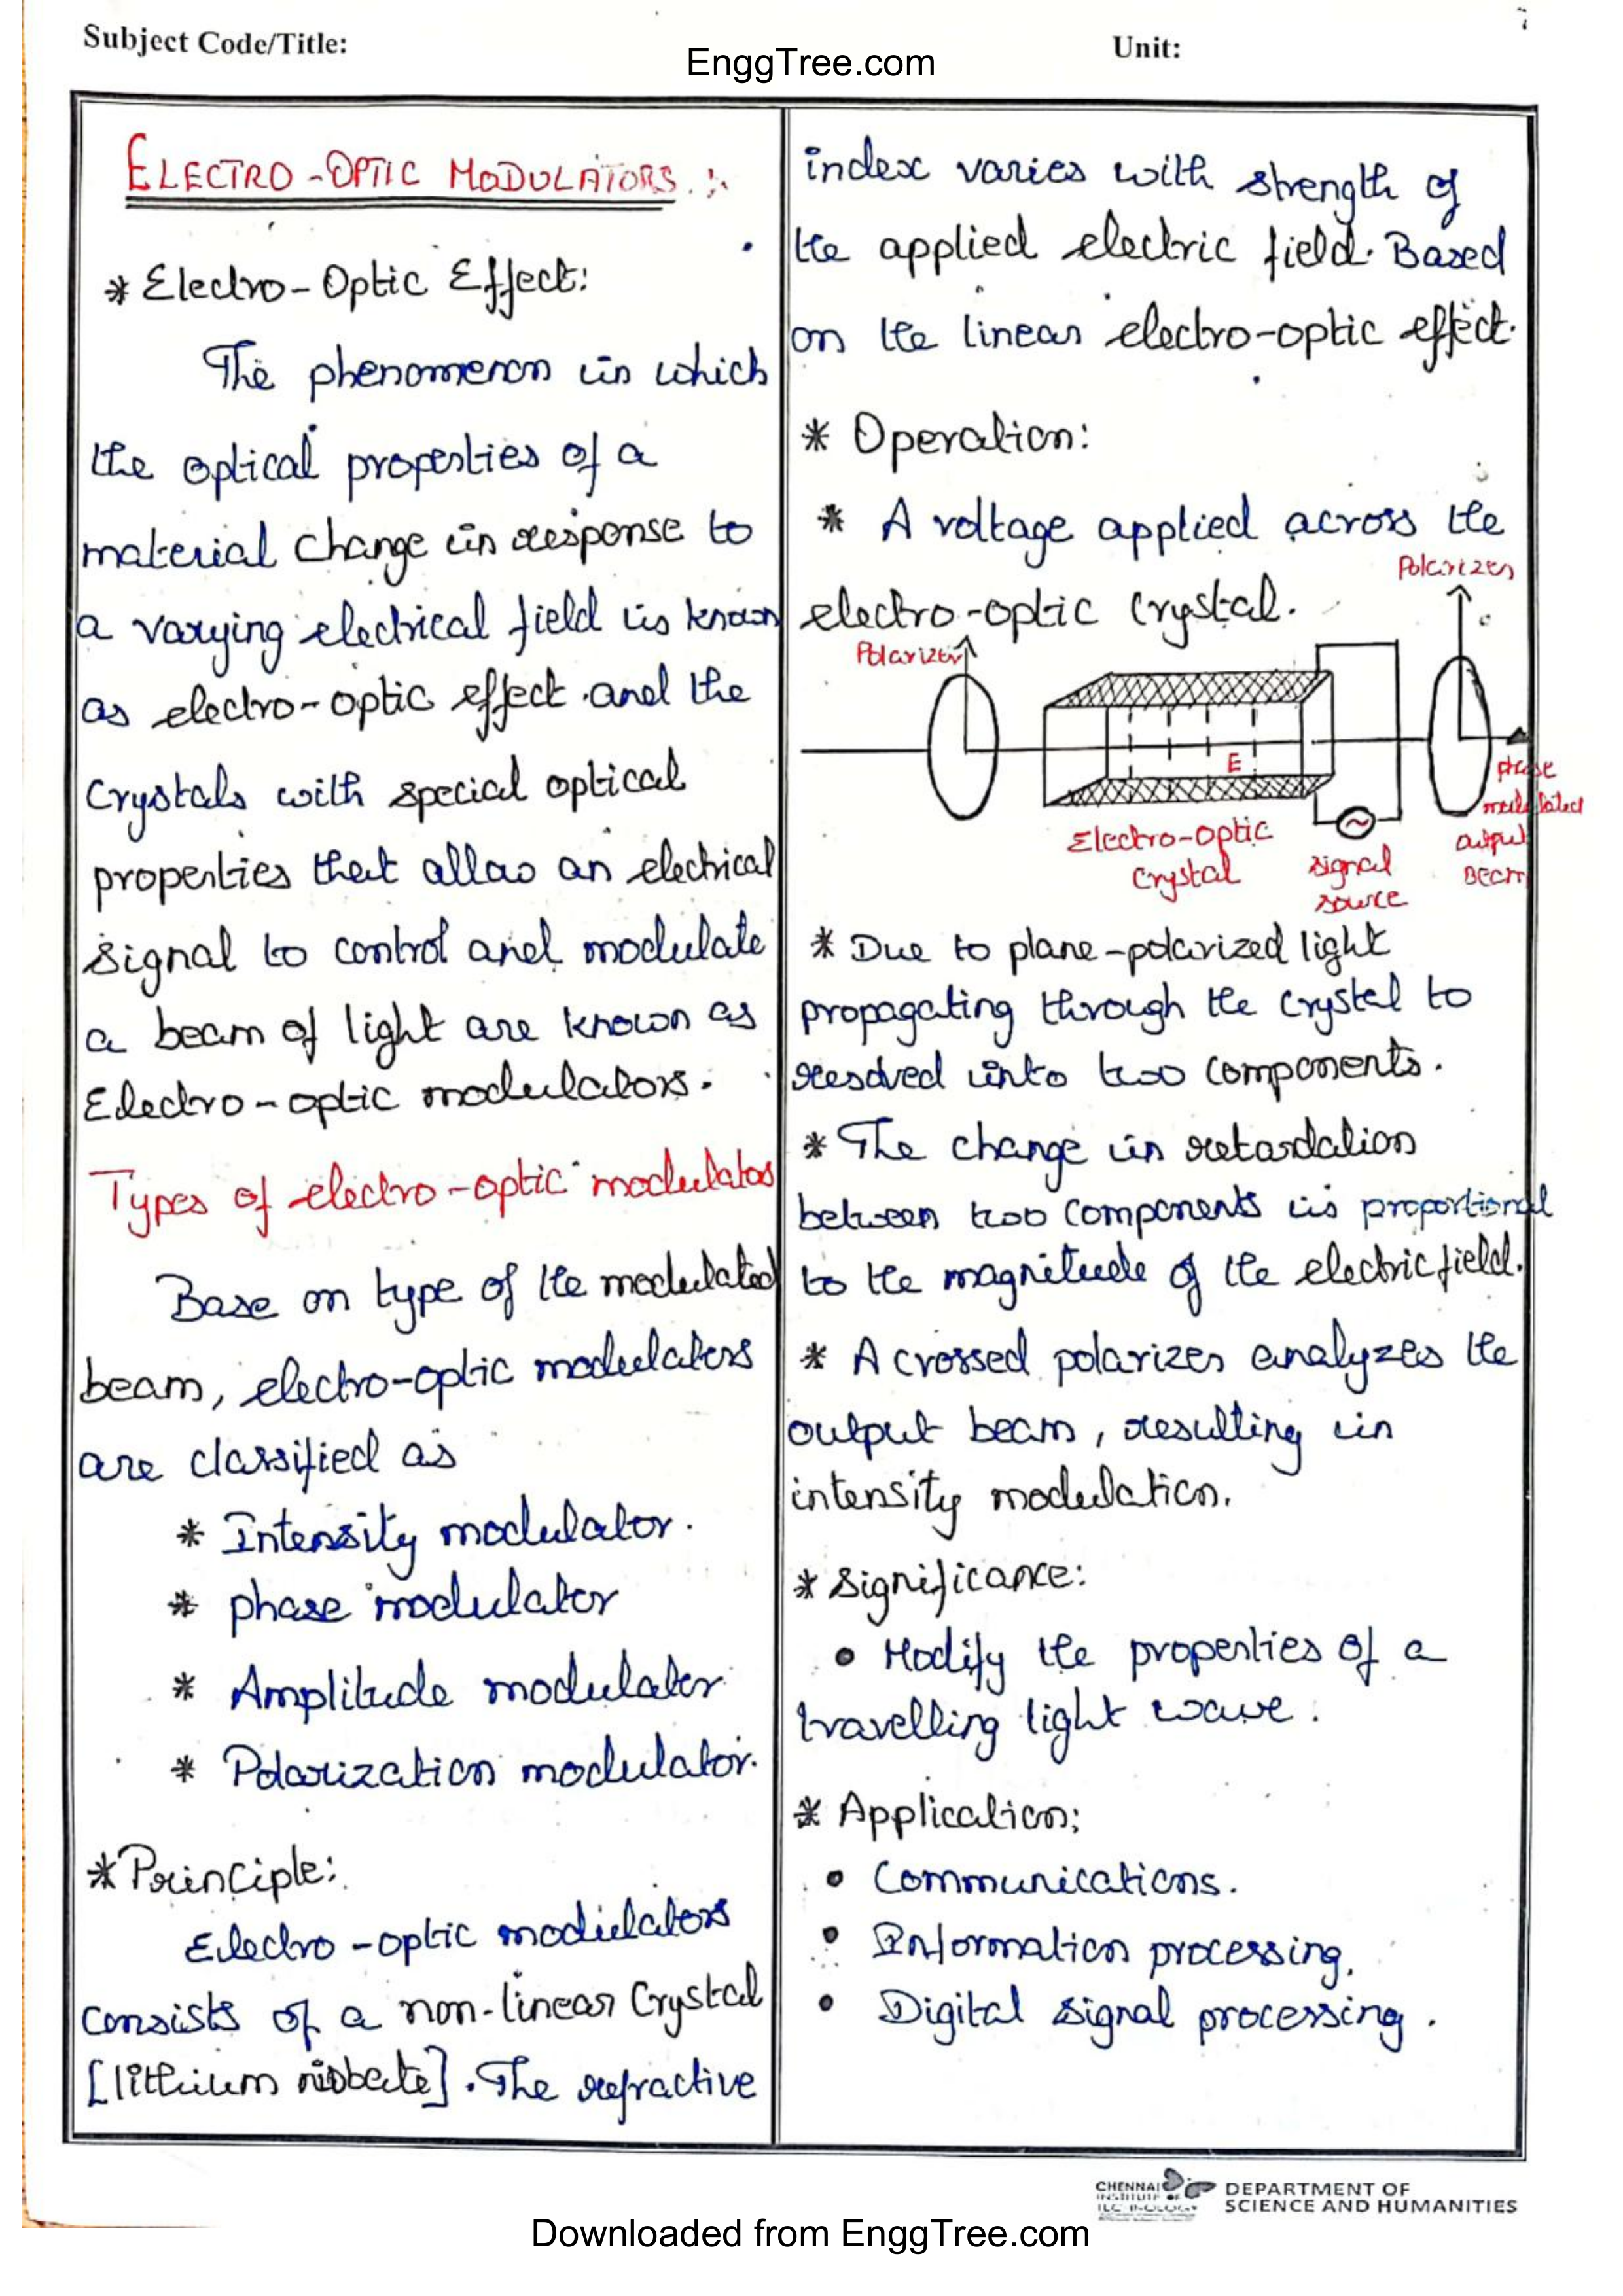 Subject Code/Title:
EnggTree.com
Unit:
ELECTRO-OPTIC MODULATORS.:
* Electro-Optic Effect:
The phenomenon in which
the optical properties of a
material change in response to
a varying electrical field is known
as electro-optic effect and the
Crystals with special optical
properties that allow an electrical
signal to control and modulate
a beam of light are known as
Electro-optic modulators.
Types of electro-optic modulators
Base on type of the modulated
beam, electro-optic modulators
are classified as
* Intensity modulator.
* phase modulator
* Amplitude modulator
* Polarization modulator.
* Principle:
Electro-optic modulators
consists of a non-linear Crystal
[lithium niobate]. The refractive
index varies with strength of
the applied electric field. Based
on the linear electro-optic effect.
* Operation:
* A voltage applied across the
electro-optic Crystal.
Polarizer
Polarizer
E
Electro-optic
Crystal
signal
source
phase
modulated
output
Beam
* Due to plane-polarized light
propagating through the crystal to
resolved into two components.
* The change in retardation
between two components is proportional
to the magnitude of the electric field.
* A crossed polarizer analyzes the
output beam, resulting in
intensity modulation.
* Significance:
• Modify the properties of a
travelling light wave.
* Application:
• Communications.
• Information processing.
• Digital signal processing.
CHENNAI
INSTITUTE OF
TECHNOLOGY
DEPARTMENT OF
SCIENCE AND HUMANITIES
Downloaded from EnggTree.com